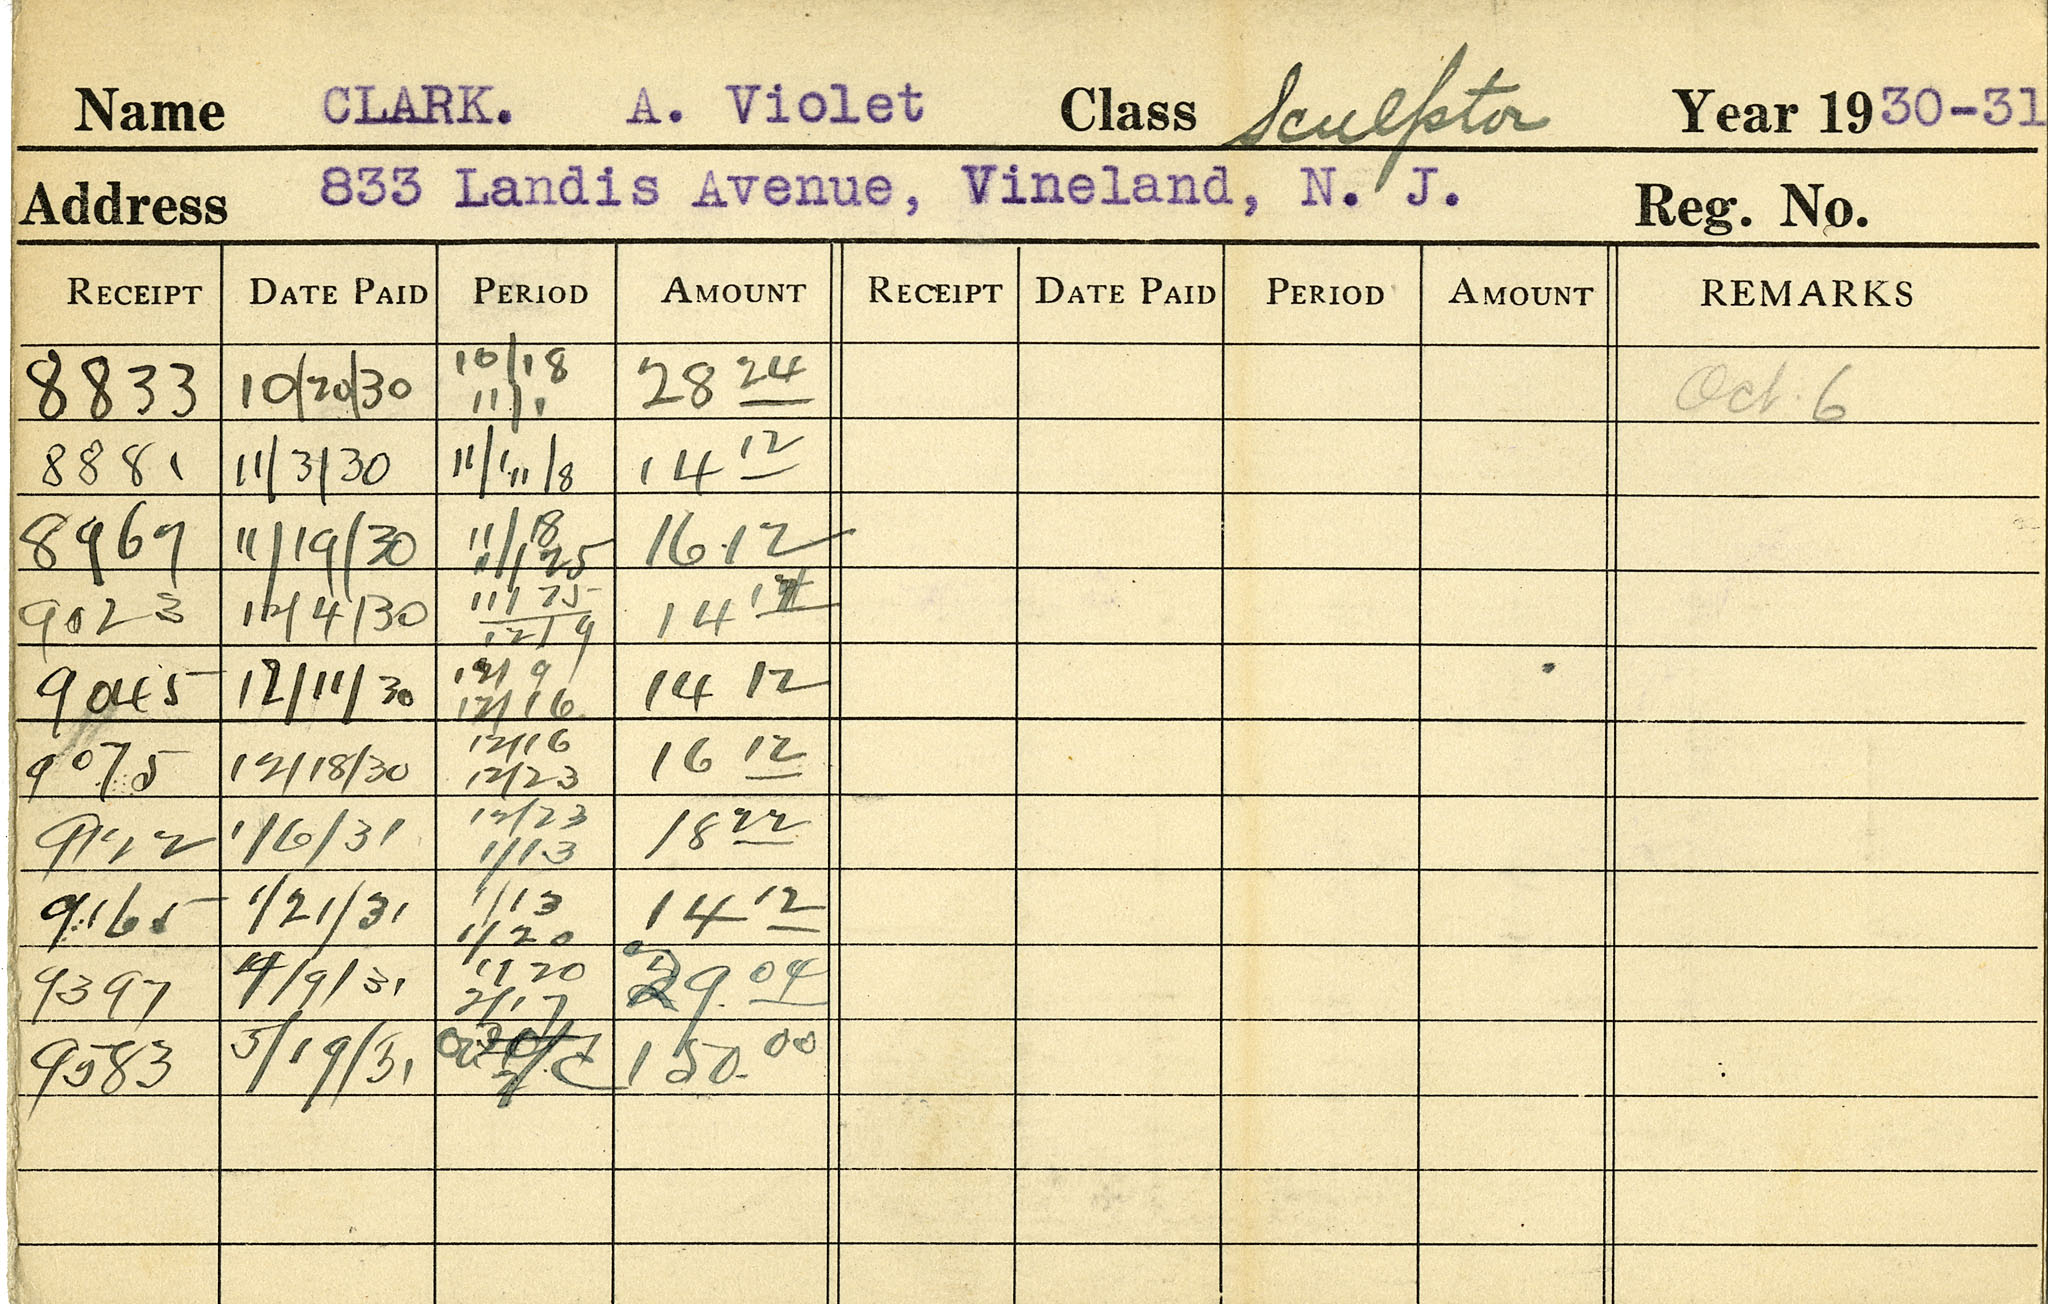 Name CLARK. A. Violet Class Sculptor Year 1930-31
Address 833 Landis Avenue, Vineland, N. J. Reg. No.
RECEIPT DATE PAID PERIOD AMOUNT RECEIPT DATE PAID PERIOD AMOUNT REMARKS
8833 10/20/30 10/18 11/1 28 24 Oct. 6
8881 11/3/30 11/1 11/8 14 12
8969 11/19/30 11/18 11/25 16.12
9023 12/4/30 11/25 12/9 14
9045 12/11/30 12/9 12/16 14 12
9075 12/18/30 12/16 12/23 16 12
9122 1/6/31 12/23 1/13 18 22
9165 1/21/31 1/13 1/20 14 12
9397 4/9/31 1/20 2/17 29.04
9583 5/19/31 150.00